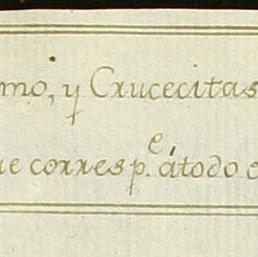 mo, y Crucecitas
ue corresp.e átodo e